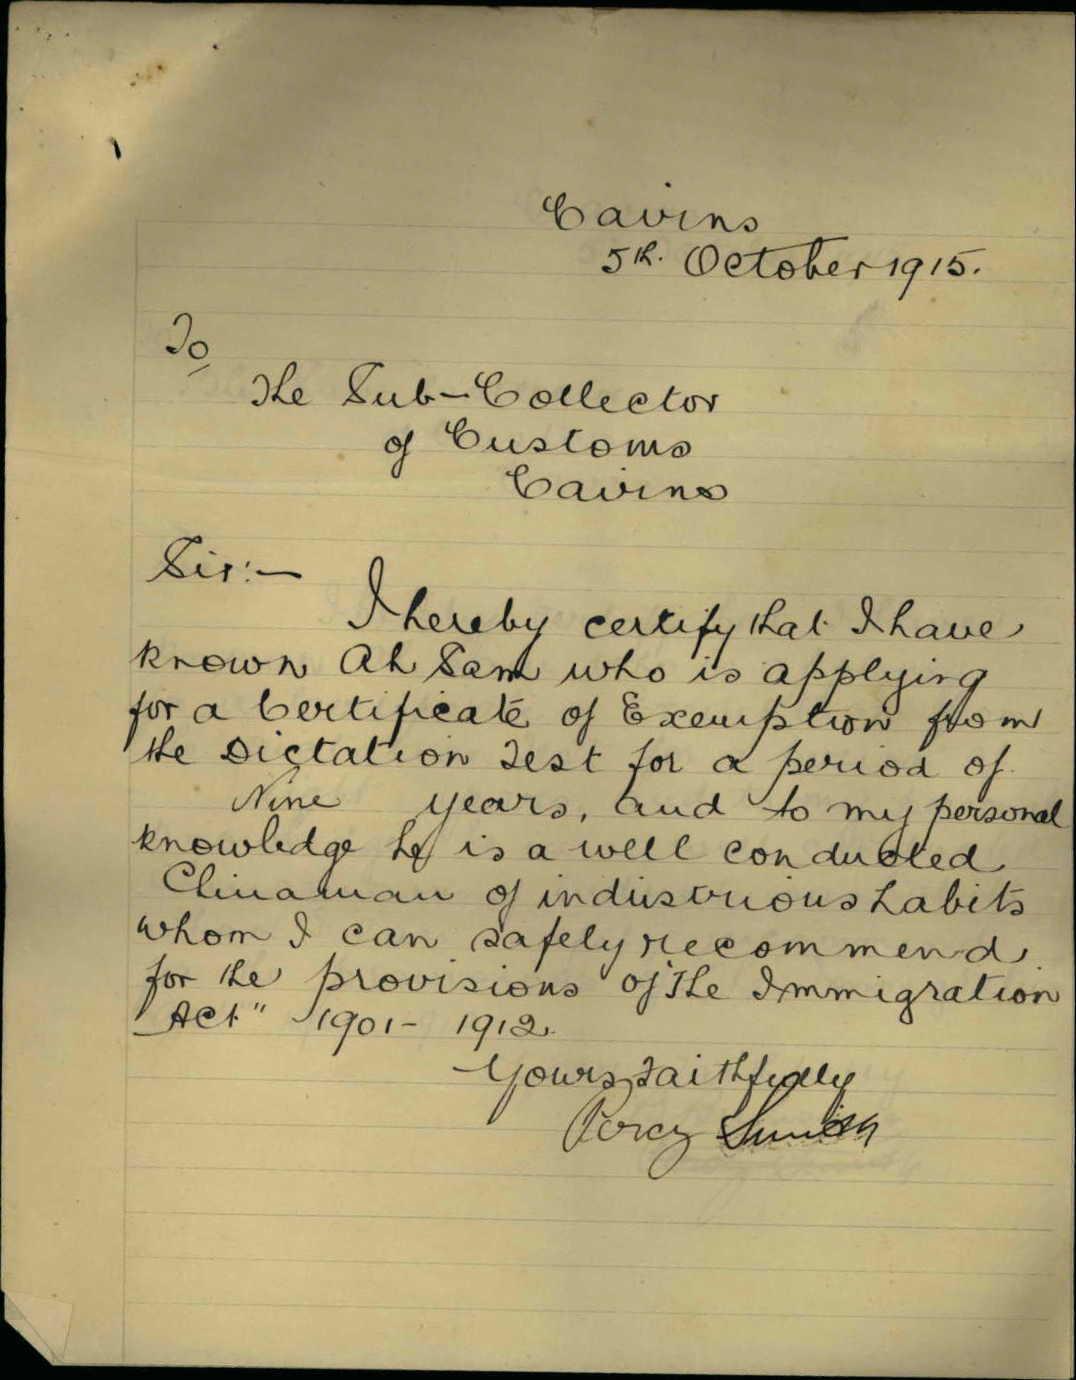 Cairns
5th. October 1915.
To
The Sub-Collector
of Customs
Cairns
Sir:-
I hereby certify that I have
known Ah Sam who is applying
for a Certificate of Exemption from
the Dictation Test for a period of
Nine years, and to my personal
knowledge he is a well conducted
Chinaman of industrious habits
whom I can safely recommend
for the provisions of "The Immigration
Act" 1901-1912.
Yours faithfully
Percy Smith